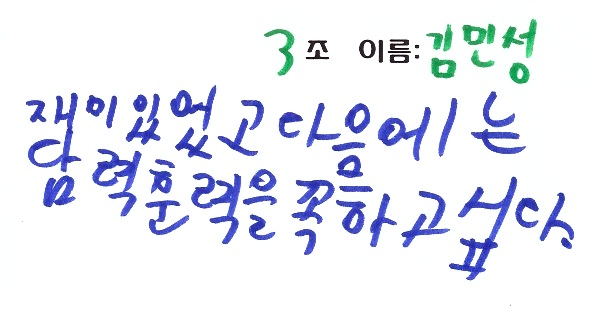 3조 이름: 김민성
재미있었고 다음에는
담력훈련을 꼭하고싶다.